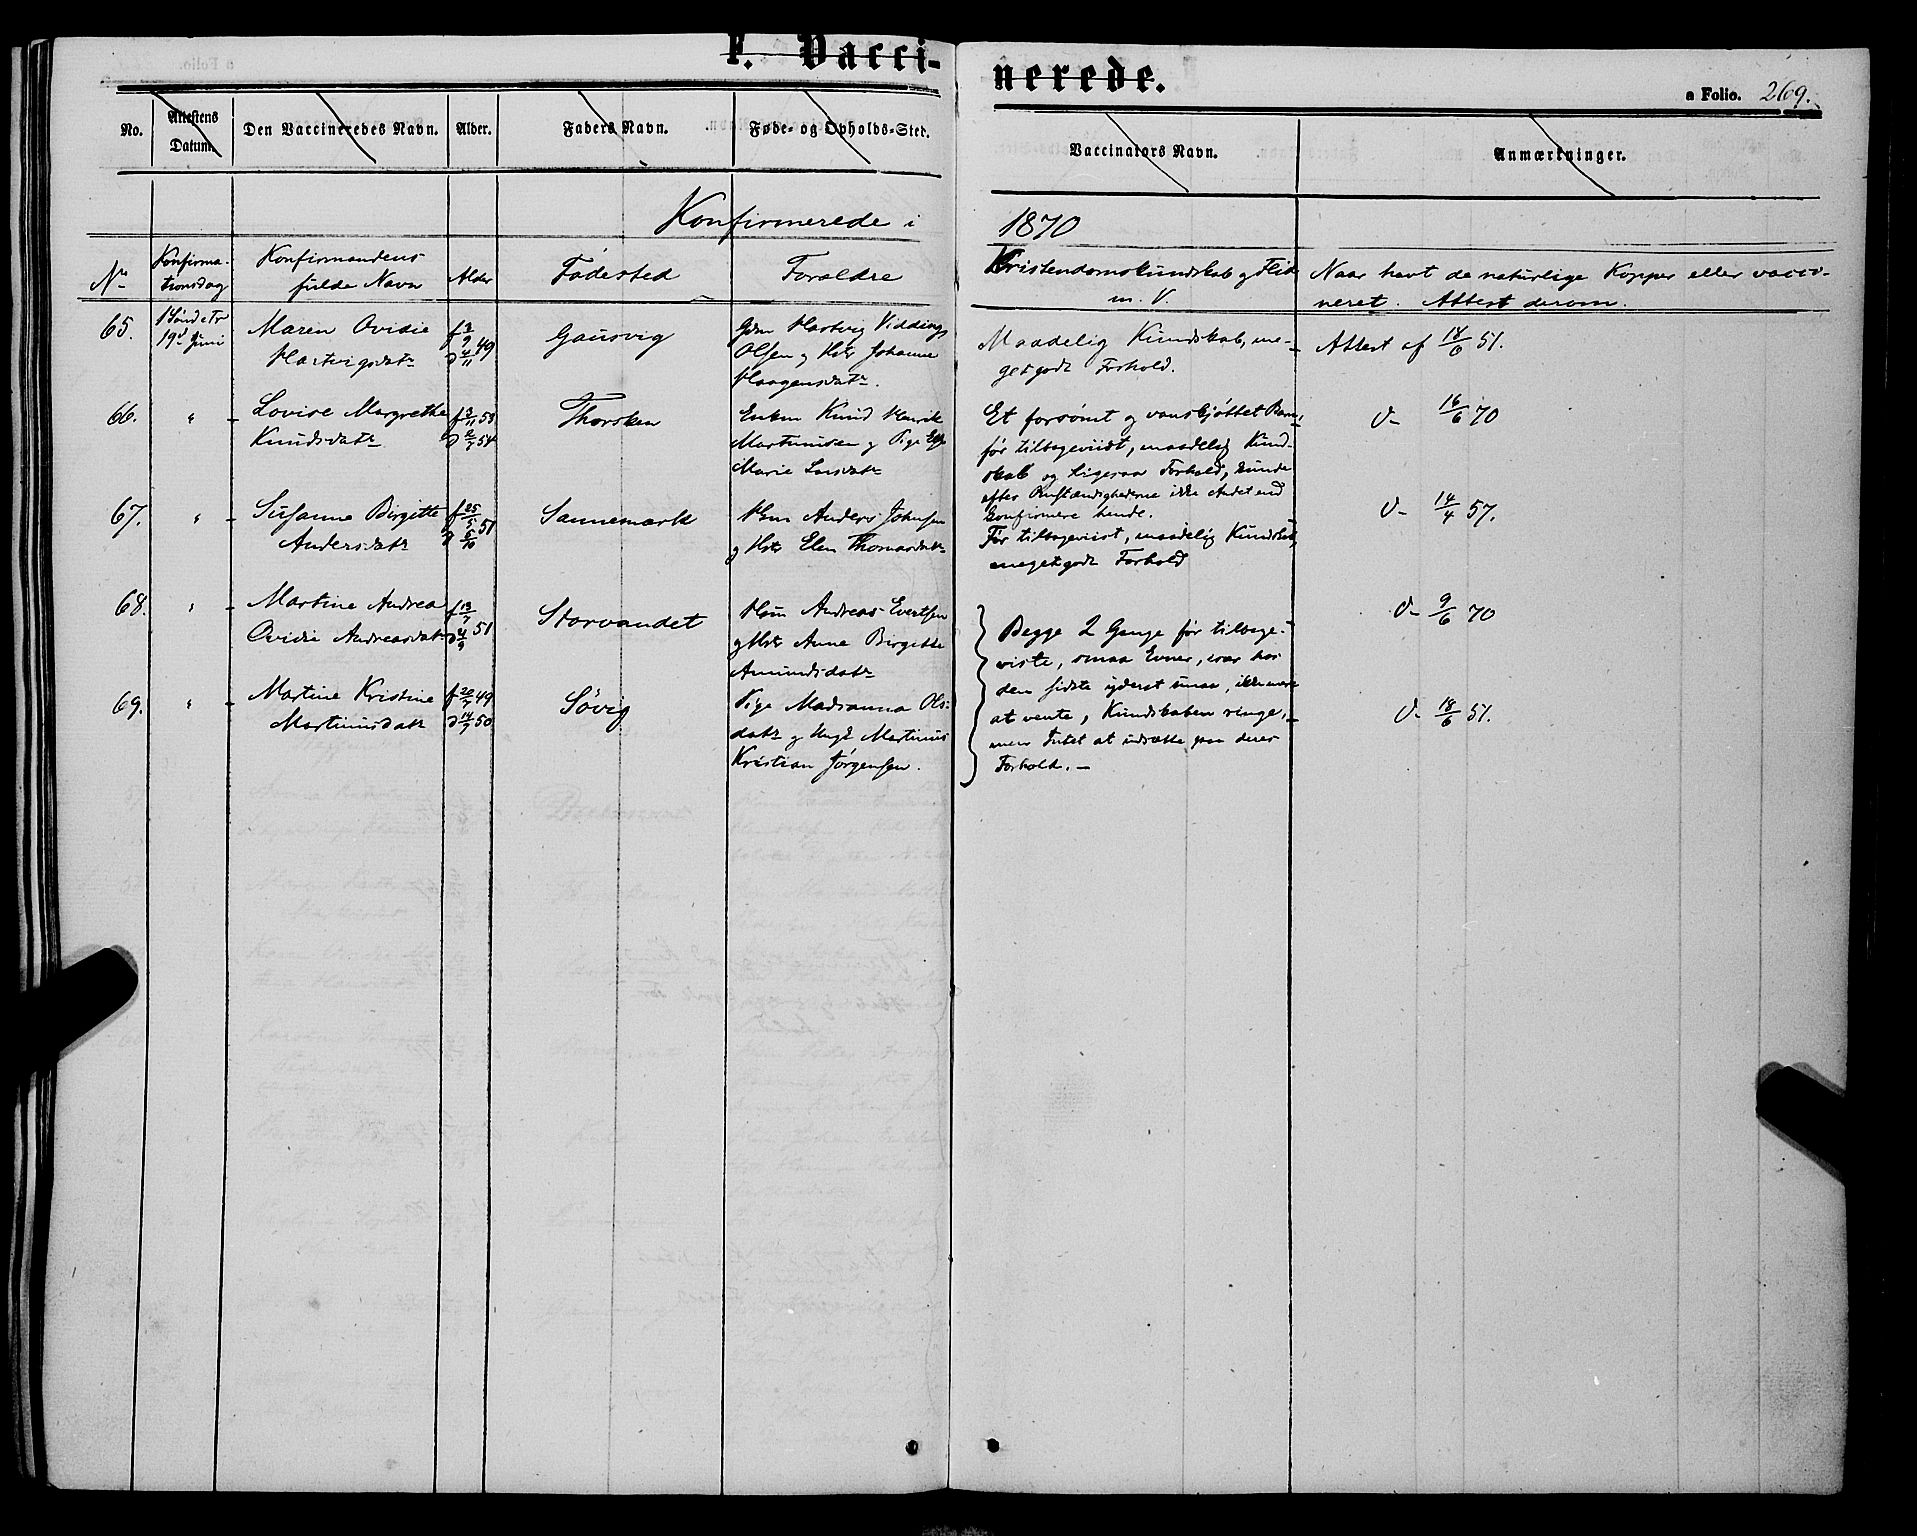 F. Vacci-
nerede.
a Folio. 269.
No.
Attestens
Datum.
Den Vaccineredes Navn.
Alder.
Faders Navn.
Føde- og Opholds-Sted.
Vaccinators Navn.
Anmærkninger.
Konfirmerede i
1870
Nr
Konfirma-
tionsdag
Konfirmandens
fulde Navn
Alder
Fødested
Forældre
Kristendomskundskab og Flid
m. V.
Naar havt de naturlige Kopper eller vacci-
neret. Attest derom.
65.
1 Sønd e Tr
19d Juni
Maren Ovidie
Hartvigsdatr
f 3/9 49
d 4/11
Gausvig
Gdm Hartvig Vidding
Olsen og Hstr Johanne
Haagensdatr.
Maadelig Kundskab, me-
get godt Forhold.
Attest af 18/6 51.
66.
"
Lovise Margrethe
Knudsdatr
f 3/11 53
d 2/7 54
Thorsken
Enkm Knud Henrik
Martinussen og Pige
Marie Larsdatr
Et forsømt og vanskjøttet Barn,
før tilbageviist, maadelig Kund-
skab og ligesaa Forhold, kunde
efter Omstændighederne ikke Andet end
konfirmere hende.
V- 16/6 70
67.
"
Susanne Birgitte
Andersdatr
f 25/5 51
d 5/10
Sannemark
Hm Anders Johnsen
og Hstr Elen Thomasdatr
Før tilbageviist, maadelig Kundskab,
meget godt Forhold
V- 14/4 57.
68.
"
Martine Andrea
Ovidie Andreasdatr
f 13/7 51
d 4/9
Storvandet
Hm Andreas Evertsen
og Hstr Anne Birgitte
Amundsdatr
Begge 2 Gange før tilbage-
viste, smaa Evner, især hos
den sidste yderst smaa, ikke mere
at vente, Kundskaben ringe,
men Intet at udsætte paa deres
Forhold. -
V- 9/6 70
69.
"
Martine Kristine
Martinusdatr
f 20/7 49
d 14/7 50
Søvig
Pige Madsanna Ols-
datr og Ungk Martinus
Kristian Jørgensen.
V- 18/6 51.